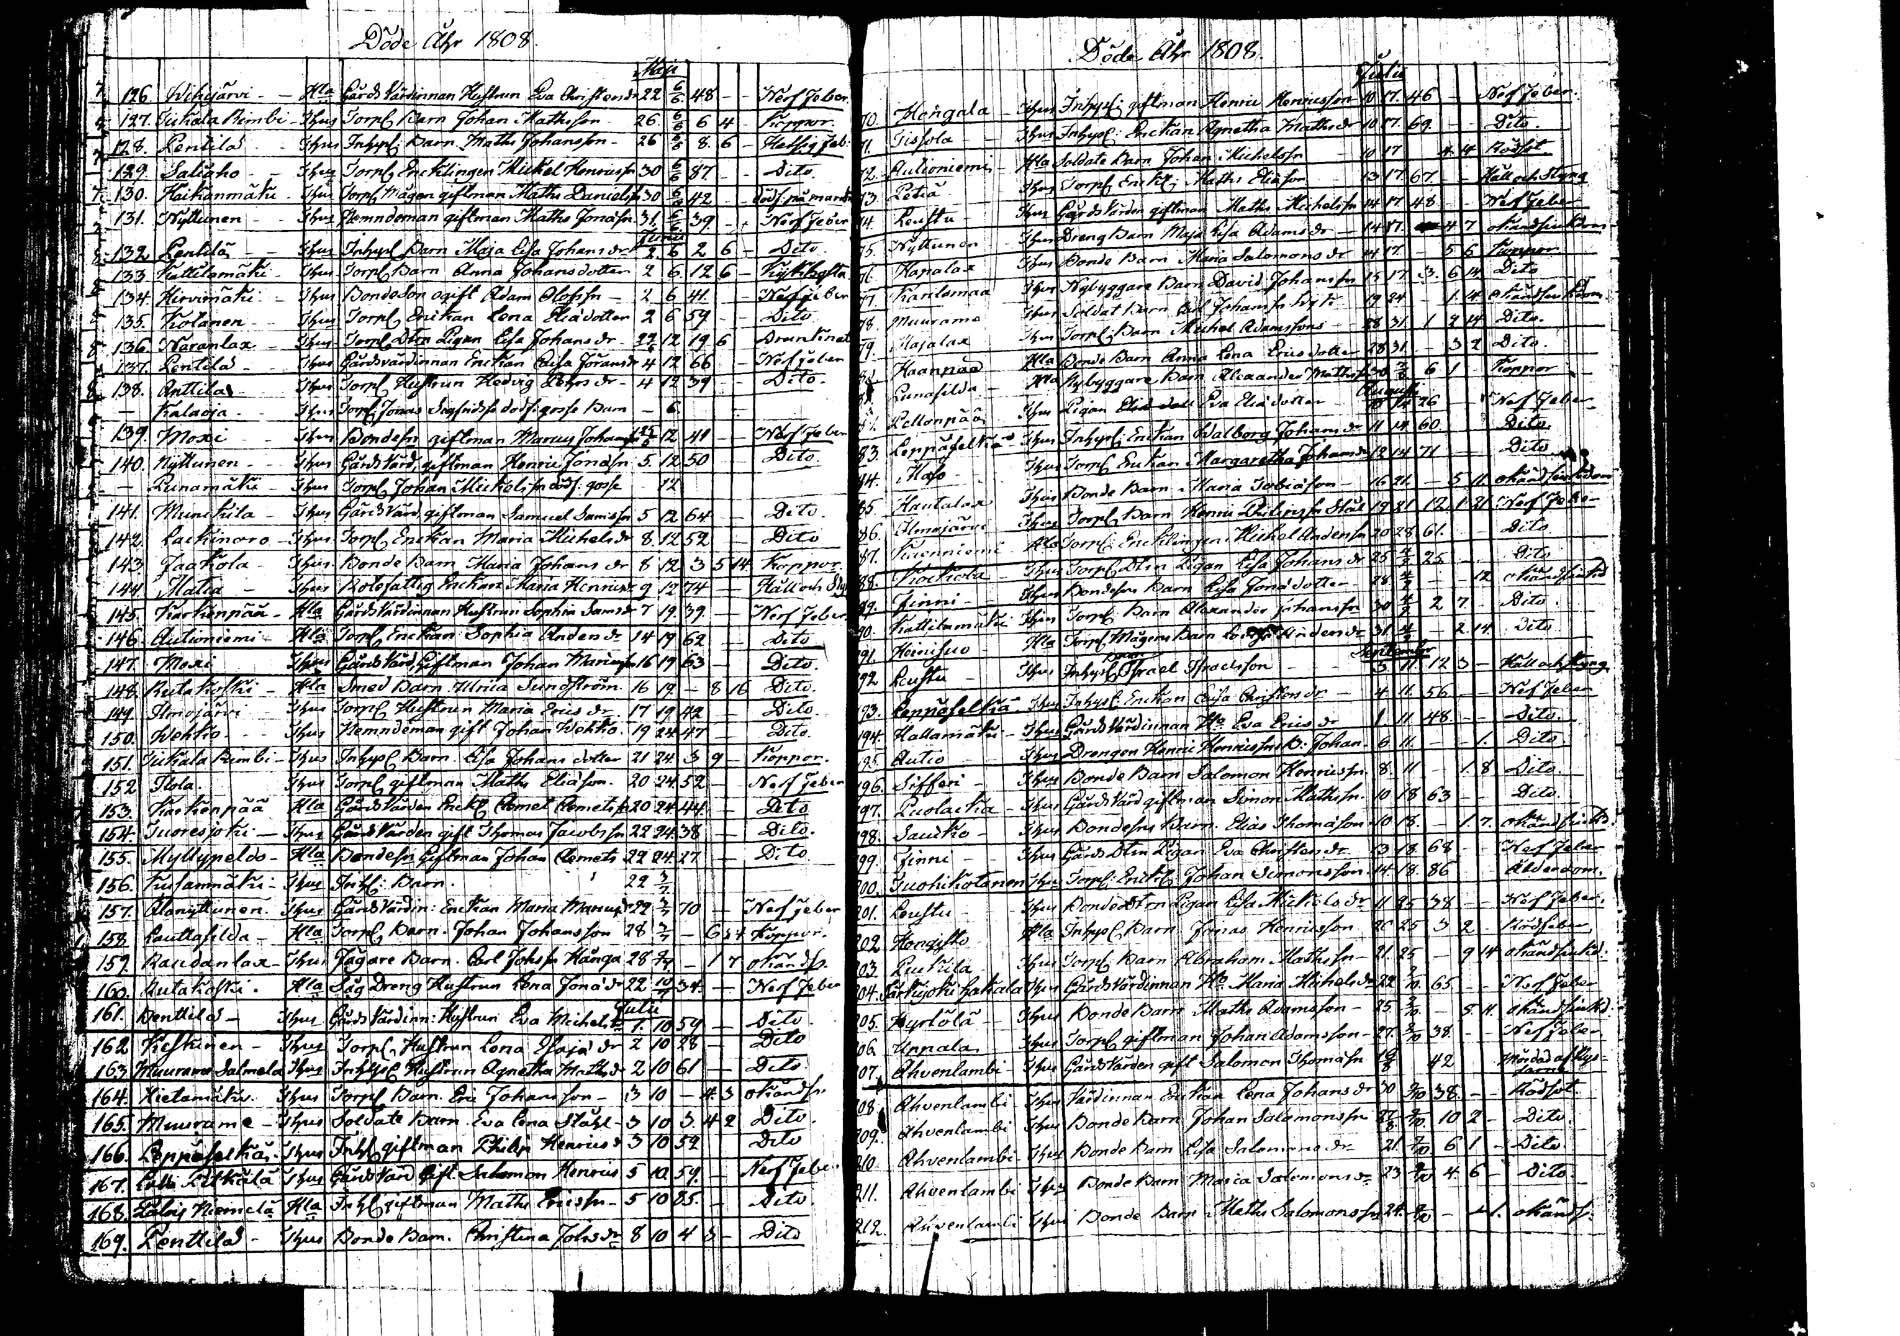 Döde Åhr 1808.
Maji
126. Wehijärvi - Hla Gårds Värdinnan Hustrun Eva Christensdr 22 6/6 48 - - Nerf feber
127. Tiukala Rimbi - Thus Torp. Barn Johan Mathsson 26 6/6 6 4 - Koppor.
128. Pentilä Thus Inhys Barn Maths Johansson 26 6/6 8 6 - Hetsig feb.
129. Saliaho Thus Torp. Encklingen Michel Henricsson 30 6/6 87 - - Dito.
130. Haikanmäki Thus Torp. Mågen giftman Maths Danielss. 30 6/6 42 - -
131. Nyttunen - Thus Nemndeman giftman Maths Jonass. 31 6/6 39 - - Nerf feber
Junii
132. Pentilä Thus Inhys Barn Maja Lisa Johansdr 2 6 2 6 - Dito.
133. Kattilamäki - Thus Torp. Barn Anna Johansdotter 2 6 12 6 - Kikhosta
134. Hirvimäki Thus Bondeson ogift Adam Olofssn 2 6 41 - Nerf feber
135. Kotanen Thus Torp. Enckan Lena Eliædotter 2 6 59 - Dito.
136. Naranlax - Thus Torp. Dtn Pigan Lisa Johansdr 22 12 19 6 Drunknat
137. Pentilä - Thus Gårdsvärdinnan Enckan Caisa Jöransdr 4 12 66 Nerf feber
138. Anttila Thus Torp. Hustrun Hedvig Pehrsdr 4 12 39 - Dito.
- Kalaoja - Thus Torp. Jonas Sigfridss. dödf. gosse Barn - 6.
139. Moxi Thus Bondesn giftman Marcus Johansn 12 41 - Nerf feber
140. Nyttunen - Thus Gårds Värd. giftman Henric Jonæsn 5 12 50 Dito.
- Punamäki - Thus Torp. Johan Michelssn dödf. gosse 12
141. Munikila - Thus Gårds Värd. giftman Samuel Samssn 5 12 64 - Dito.
142. Lackinoro - Thus Torp. Enckan Maria Michelsdr 8 12 52 Dito
143. Jaakola - Thus Bonde Barn Maria Johansdr 8 12 3 5 14 Koppor.
144. Matia Thus Rotefattig Enckan Maria Henricsdr 9 12 74 - Håll och Styng
145. Karhenpää - Hla Gårds Värdinnan Hustrun Sophia Samsdr 7 19 39 - Nerf feber
146. Autioniemi Hla Torp. Enckan Sophia Andersdr 14 19 62 - Dito
147. Moxi Thus Gårds Värd. Giftman Johan Marcussn 16 19 63 - Dito.
148. Rutakoski - Hla Smed Barn Ulrica Sundström 16 19 - 8 16 Dito.
149. Ilmojärvi Thus Torp. Hustrun Maria Ericsdr 17 19 42 - Dito.
150. Wehko - Thus Nemndeman gift Johan Wehko 19 24 47 - Dito.
151. Tiukala Rimbi - Thus Inhys Barn Lisa Johansdotter 21 24 3 9 - Koppor.
152. Ilola Thus Torp. giftman Maths Eliæson 20 24 52 - Nerf feber
153. Karhenpää Hla Gårds Värden Enckl. Clemet Clemetss. 20 24 44 - Dito
154. Suoresjoki - Thus Gårds Värden gift Thomas Jacobssn 22 24 38 - Dito.
155. Myllypeldo - Hla Bondesn Giftman Johan Clemets 22 24 27 - Dito
156. Kusianmäki - Thus Inh: Barn. 22 3/7
157. Alanyttunen Thus Gårds Värdin: Enckan Maria Marcusdr 22 3/7 70 - Nerf feber
158. Lauttasilda - Hla Torp. Barn Johan Johansson 28 3/7 - 6 Koppor.
159. Raudanlax - Thus Jägare Barn Carl Johssn Hånga 28 - 1 7 okänds.
160. Rutakoski. Hla Såg Dreng Hustrun Lena Jonædr 22 10/7 34 - Nerf feber
Julii
161. Penttilä - Thus Gårds Värdinn: Hustrun Eva Michelsdr 1 10 59 - Dito
162. Kiskinen - Thus Torp. Hustrun Lena Isajædr 2 10 28 - Dito
163. Muurame Salmela Thus Inhys Hustrun Agnetha Mathsdr 2 10 61 - Dito.
164. Hietamäki. Thus Torp. Barn Eric Johansson 3 10 - 4 3 okändsn
165. Muurame - Thus Soldate Barn Eva Lena Stähl 3 10 3 4 2 Dito.
166. Leppäselkä Thus Inh. giftman Philip Henricss. 3 10 52 Dito
167. Thus Gårds Värd. gift Salomon Henricss 5 10 59 - Nerf feber
168. Niemelä Hla Inh. giftman Maths Ericssn 5 10 85 - Dito
169. Penttilä Thus Bonde Barn Christina Johsdr 8 10 4 3 - Dito
Döde Åhr 1808.
Julii
70. Hongala Thus Inhys: giftman Henric Henricsson 10 17 46 - - Nerf feber.
71. Tissola Thus Inhys: Enckan Agnetha Mathsdr 10 17 69 - - Dito.
72. Autioniemi Hla Soldate Barn Johan Michelssn 10 17 - 4 14 Rödsot
73. Petiä Thus Torp. Enckl. Maths Eliæson 13 17 67 - Håll och Styng
74. Leustu Thus Gårds Värden giftman Maths Michelssn 14 17 48 - - Nerf feber
75. Nyttunen Thus Dreng Barn Maja Lisa Adamsdr 14 17 - 4 7 okänd sjukdom
76. Hapalax Thus Bonde Barn Maria Salomonsdr 14 17 - 5 6 Koppor
77. Kantomaa Thus Nybyggare Barn David Johanssn 15 17 3 6 14 Dito
78. Muurame Thus Soldat Barn Johanssn 19 24 - 1 14 okänd sjukdom
79. Majalax Thus Torp. Barn Michel Adamssons 28 31 1 2 14 Dito.
Haanpää Hla Bonde Barn Anna Lena Ericsdotter 28 31 - 3 2 Dito.
Lunasilda Hla Nybyggare Barn Alexander Mathssn 30 6 1 Koppor
Augusti
Pellonpää Thus Pigan Eva Eliædotter 10 14 26 - Nerf feber
83. Leppäselkä Thus Inhys. Enckan Walborg Johansdr 11 14 60 Dito.
84. Thus Torp. Enckan Margaretha Johansdr 12 14 71 - Dito
85. Hautalax Thus Bonde Barn Maria Tobiædr 16 21 - 5 11 okänd sjukdom
86. Ilmojärvi Thus Torp. Barn Henric 19 21 12 1 21 Nerf feber
87. Hla Torp. Encklingen Michel Anderssn 20 28 61 Dito
88. Kockola Thus Torp. Dtn Pigan Lisa Johansdr 25 4/9 25 - Dito
89. Finni - Thus Bondesn Barn Lisa Jonædotter 28 4/9 - - 12 okänd sjukd
90. Kattilamäki Thus Torp. Barn Alexander Johanssn 30 4/9 2 7 - Dito.
91. Hoinisuo - Hla Torp. Mågens Barn Andersdr 31 4/9 - 2 14 Dito
September
92. Leustu - Thus Inhys Barn Israel Israelsson 3 11 12 3 - Håll och styng
93. Leppäselkä Thus Inhys. Enckan Caisa Christersdr 4 11 56 - Nerf feber
194. Hallamäki - Thus Gårds Värdinnan Ha Eva Ericsdr 1 11 48 - Dito.
95. Autio Thus Drengen Henric Henricssns B. Johan 6 11 - - 1 Dito
196. Sifferi - Thus Bonde Barn Salomon Henricssn 8 11 - 1 8 Dito.
97. Puolacka - Thus Gårds Värd giftman Simon Mathssn 10 18 63 - Dito.
98. Saucko - Thus Bondesns Barn Elias Thomasson 10 18 - 1 7 okänd sjukd
99. Finni - Thus Gårds Dtn Pigan Eva Christersdr 13 18 68 - Nerf feber
200. Suohikotanen Thus Torp. Enckl: Johan Simonsson 14 18 86 - Ålderdom.
201. Leustu - Thus Bonde Dtrn Pigan Lisa Michelsdr 11 25 38 - Nerf feber.
202. Hongisto Hla Inhys. Barn Jonas Henricsson 20 25 3 2 - Rödfeber
203. Puikila Thus Torp. Barn Abraham Mathssn 21 25 - 9 14 okänd sjukd.
204. Särkijoki Hakala Thus Gårds Värdinnan Ha Maria Michelsdr 22 2/10 65 - Nerf feber
205. Pyrtölä - Thus Bonde Barn Maths Adamsson 25 2/10 - 5 11 okänd sjukd.
206. Uppala - Thus Torp. giftman Johan Adamsson 27 2/10 38 - Nerf feber
207. Ahvenlambi Thus Gårds Värden gift Salomon Thomæsn 42 Mördad af Ryssarne
208. Ahvenlambi Thus Värdinnan Enckan Lena Johansdr 30 2/10 38 - Rödsot
209. Ahvenlambi Thus Bonde Barn Johan Salomonssn 2/10 10 2 - Dito.
210. Ahvenlambi Thus Bonde Barn Lisa Salomonsdr 21 2/10 6 1 - Dito
211. Ahvenlambi Thus Bonde Barn Maria Salomonsdr 23 2/10 4 6 - Dito.
212. Ahvenlambi Thus Bonde Barn Maths Salomonssn 24 2/10 - - 1. okänds.